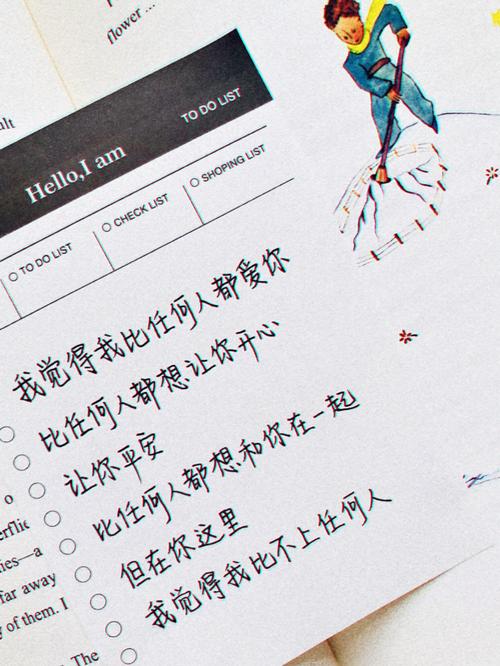 flower ...
ult
TO DO LIST
Hello,I am
TO DO LIST
CHECK LIST
SHOPING LIST
我觉得我比任何人都爱你
比任何人都想让你开心
让你平安
比任何人都想和你在一起
但在你这里
我觉得我比不上任何人
o
erflie
ies—a
far away
y of them. I
The